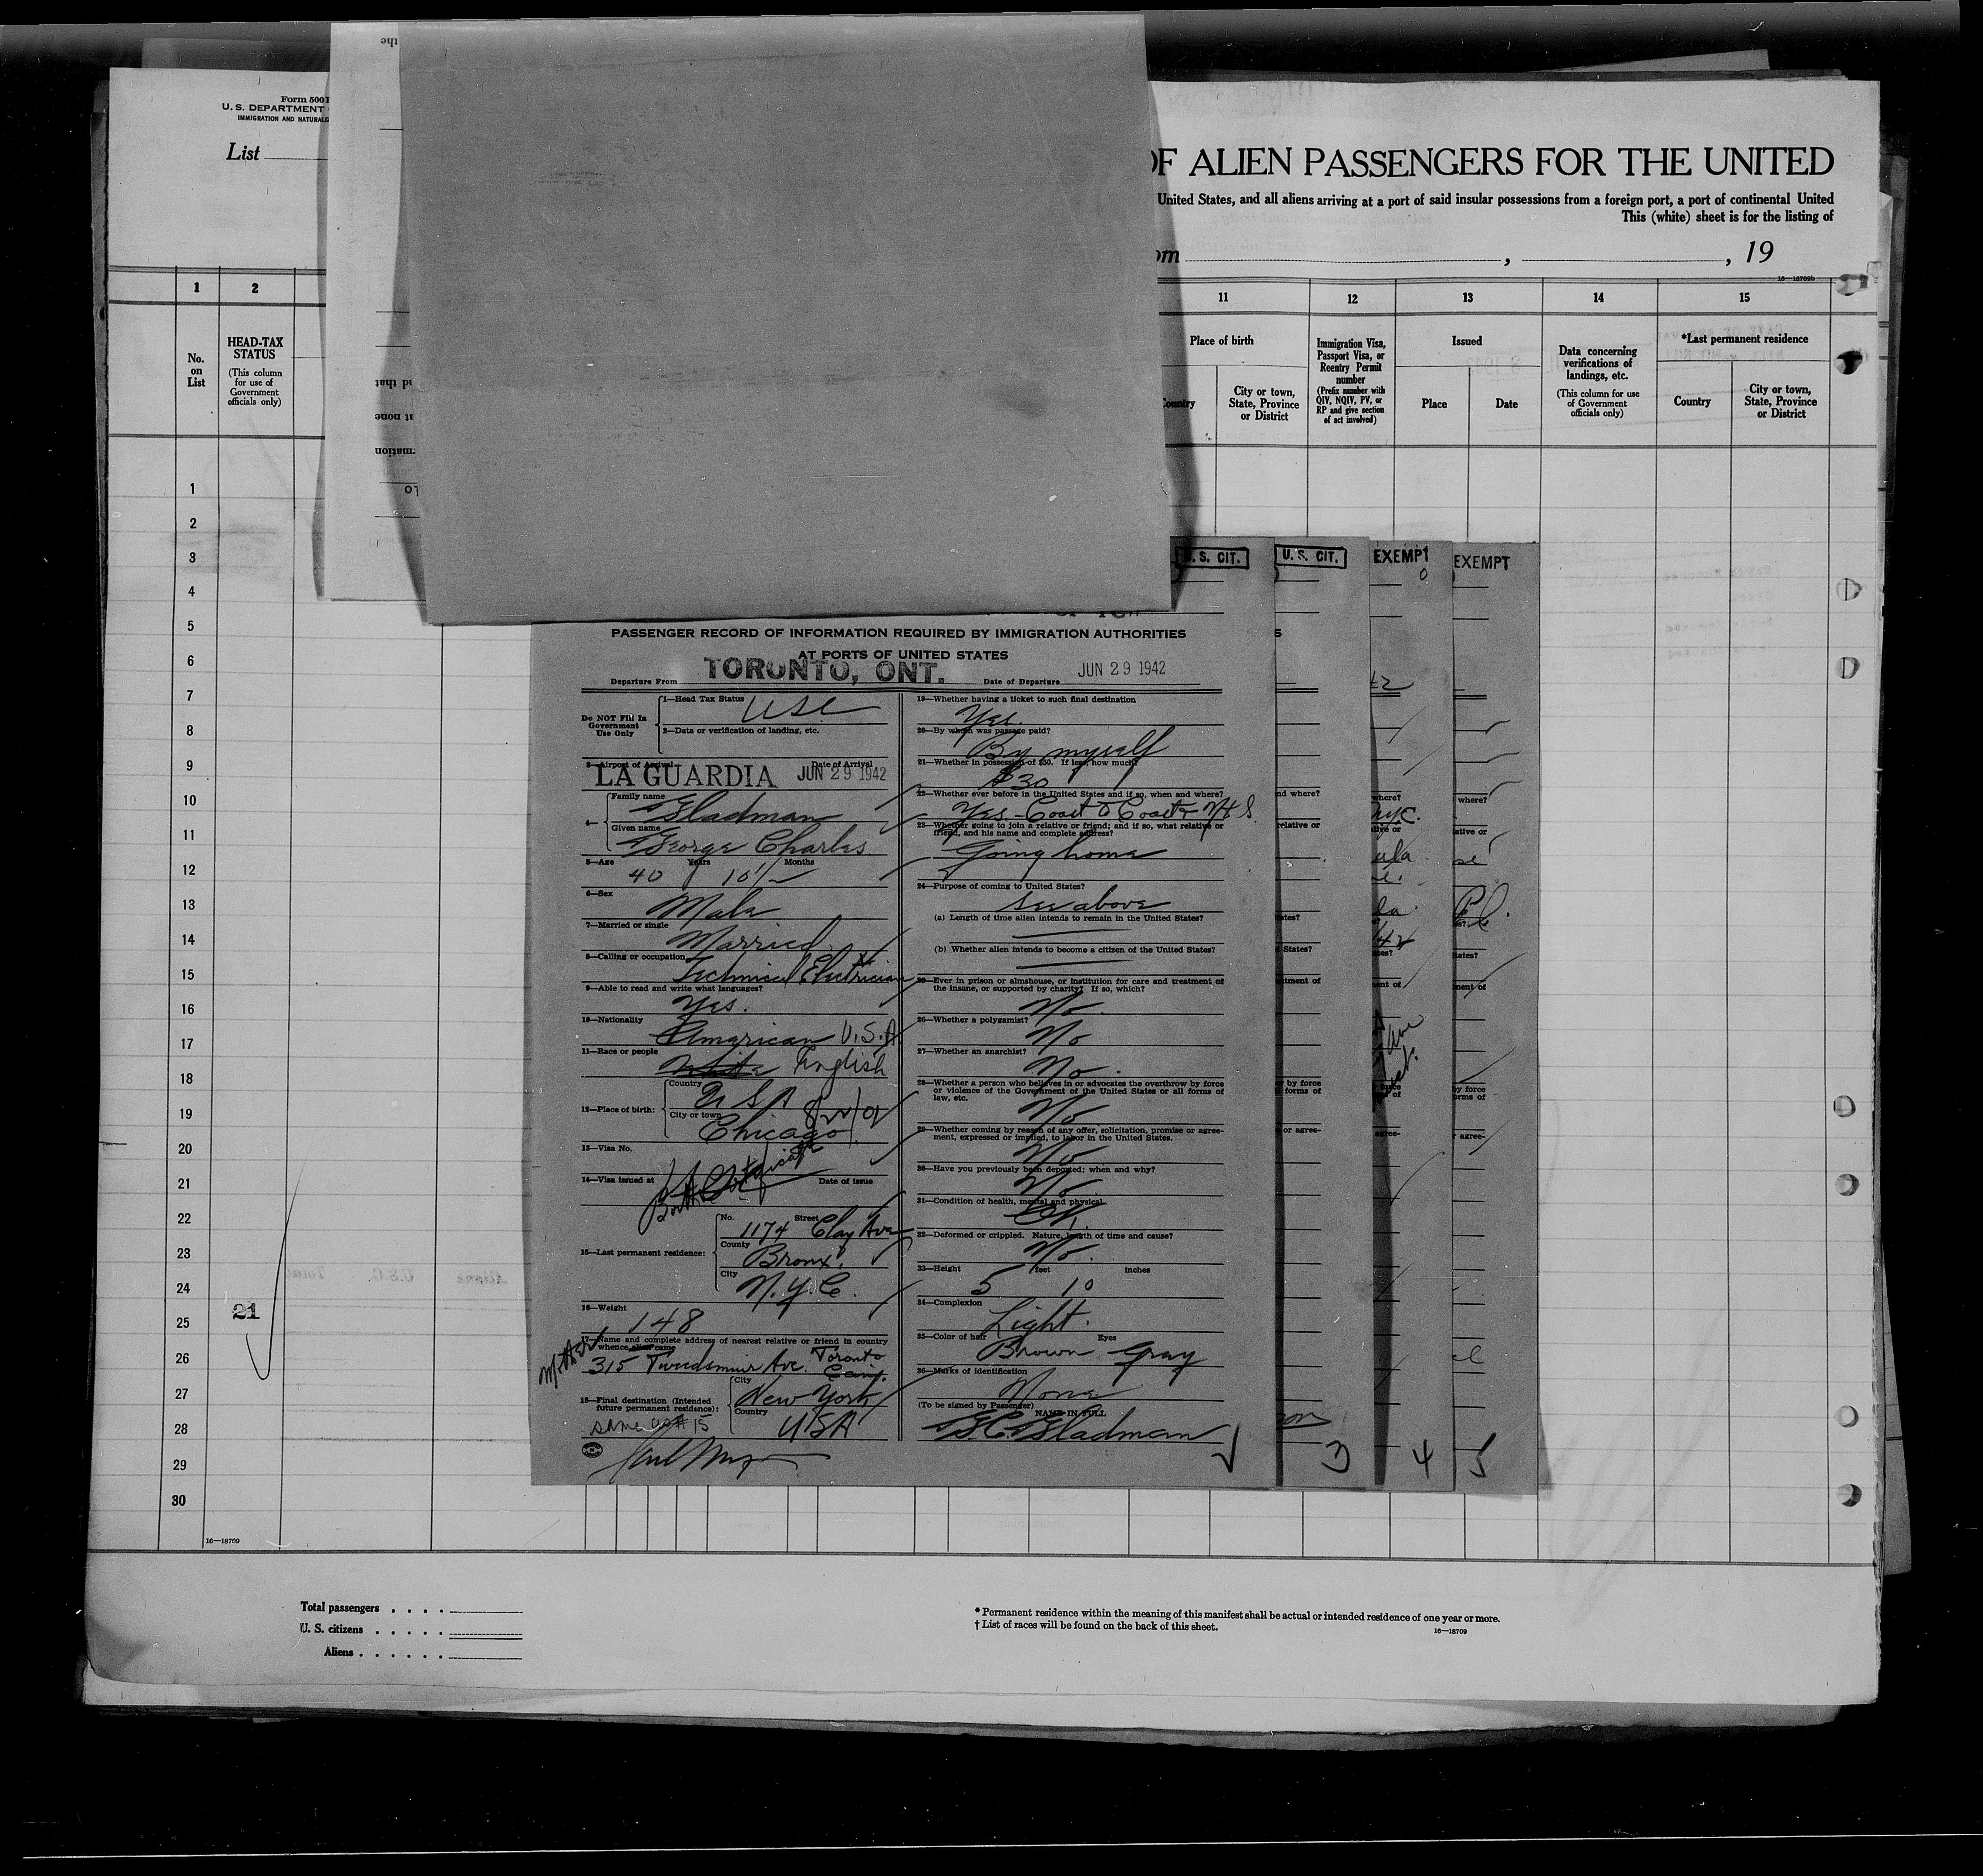 Form 500
U. S. DEPARTMENT
IMMIGRATION AND NATURALI
List
OF ALIEN PASSENGERS FOR THE UNITED
United States, and all aliens arriving at a port of said insular possessions from a foreign port, a port of continental United
This (white) sheet is for the listing of
om , , 19
16—18709b
1 2 11 12 13 14 15
No. on List
HEAD-TAX STATUS
(This column for use of Government officials only)
Place of birth
Country
City or town, State, Province or District
Immigration Visa, Passport Visa, or Reentry Permit number
(Prefix number with QIV, NQIV, PV, or RP and give section of act involved)
Issued
Place
Date
Data concerning verifications of landings, etc.
(This column for use of Government officials only)
*Last permanent residence
Country
City or town, State, Province or District
1
2
3
4
5
6
7
8
9
10
11
12
13
14
15
16
17
18
19
20
21
22
23
24
25
26
27
28
29
30
21
16—18709
U. S. CIT.
U. S. CIT.
EXEMPT
EXEMPT
PASSENGER RECORD OF INFORMATION REQUIRED BY IMMIGRATION AUTHORITIES
AT PORTS OF UNITED STATES
Departure From TORONTO, ONT. Date of Departure JUN 29 1942
Do NOT Fill In Government Use Only
1—Head Tax Status USC
2—Data or verification of landing, etc.
3—Airport of Arrival Date of Arrival
LA GUARDIA JUN 29 1942
4—
Family name Gladman
Given name George Charles
5—Age Years Months
40 10½
6—Sex
Male
7—Married or single
Married
8—Calling or occupation
Technical Electrician
9—Able to read and write what languages?
Yes.
10—Nationality
American U.S.A.
11—Race or people
White English
12—Place of birth:
Country
USA
City or town
Chicago
13—Visa No.
Birth Certificate
14—Visa issued at Date of issue
15—Last permanent residence:
No. Street
1174 Clay Ave
County
Bronx
City
N.Y.C.
16—Weight
148
17—Name and complete address of nearest relative or friend in country
whence alien came
Mother
315 Tweedsmuir Ave. Toronto
18—Final destination (Intended future permanent residence):
City
New York
Country
USA
same as #15
19—Whether having a ticket to such final destination
Yes
20—By whom was passage paid?
By myself
21—Whether in possession of $50. If less, how much?
$30
22—Whether ever before in the United States and if so, when and where?
Yes - Coast to Coast
23—Whether going to join a relative or friend; and if so, what relative or
friend, and his name and complete address?
Going home
24—Purpose of coming to United States?
see above
(a) Length of time alien intends to remain in the United States?
(b) Whether alien intends to become a citizen of the United States?
25—Ever in prison or almshouse, or institution for care and treatment of
the insane, or supported by charity? If so, which?
No.
26—Whether a polygamist?
No
27—Whether an anarchist?
No.
28—Whether a person who believes in or advocates the overthrow by force
or violence of the Government of the United States or all forms of
law, etc.
No
29—Whether coming by reason of any offer, solicitation, promise or agree-
ment, expressed or implied, to labor in the United States.
No
30—Have you previously been deported; when and why?
No
31—Condition of health, mental and physical.
32—Deformed or crippled. Nature, length of time and cause?
No.
33—Height feet inches
5 10
34—Complexion
Light.
35—Color of hair Eyes
Brown Gray
36—Marks of identification
None
(To be signed by Passenger)
NAME IN FULL
G.C. Gladman
3
4
5
Total passengers
U. S. citizens
Aliens
* Permanent residence within the meaning of this manifest shall be actual or intended residence of one year or more.
† List of races will be found on the back of this sheet.
16—18709